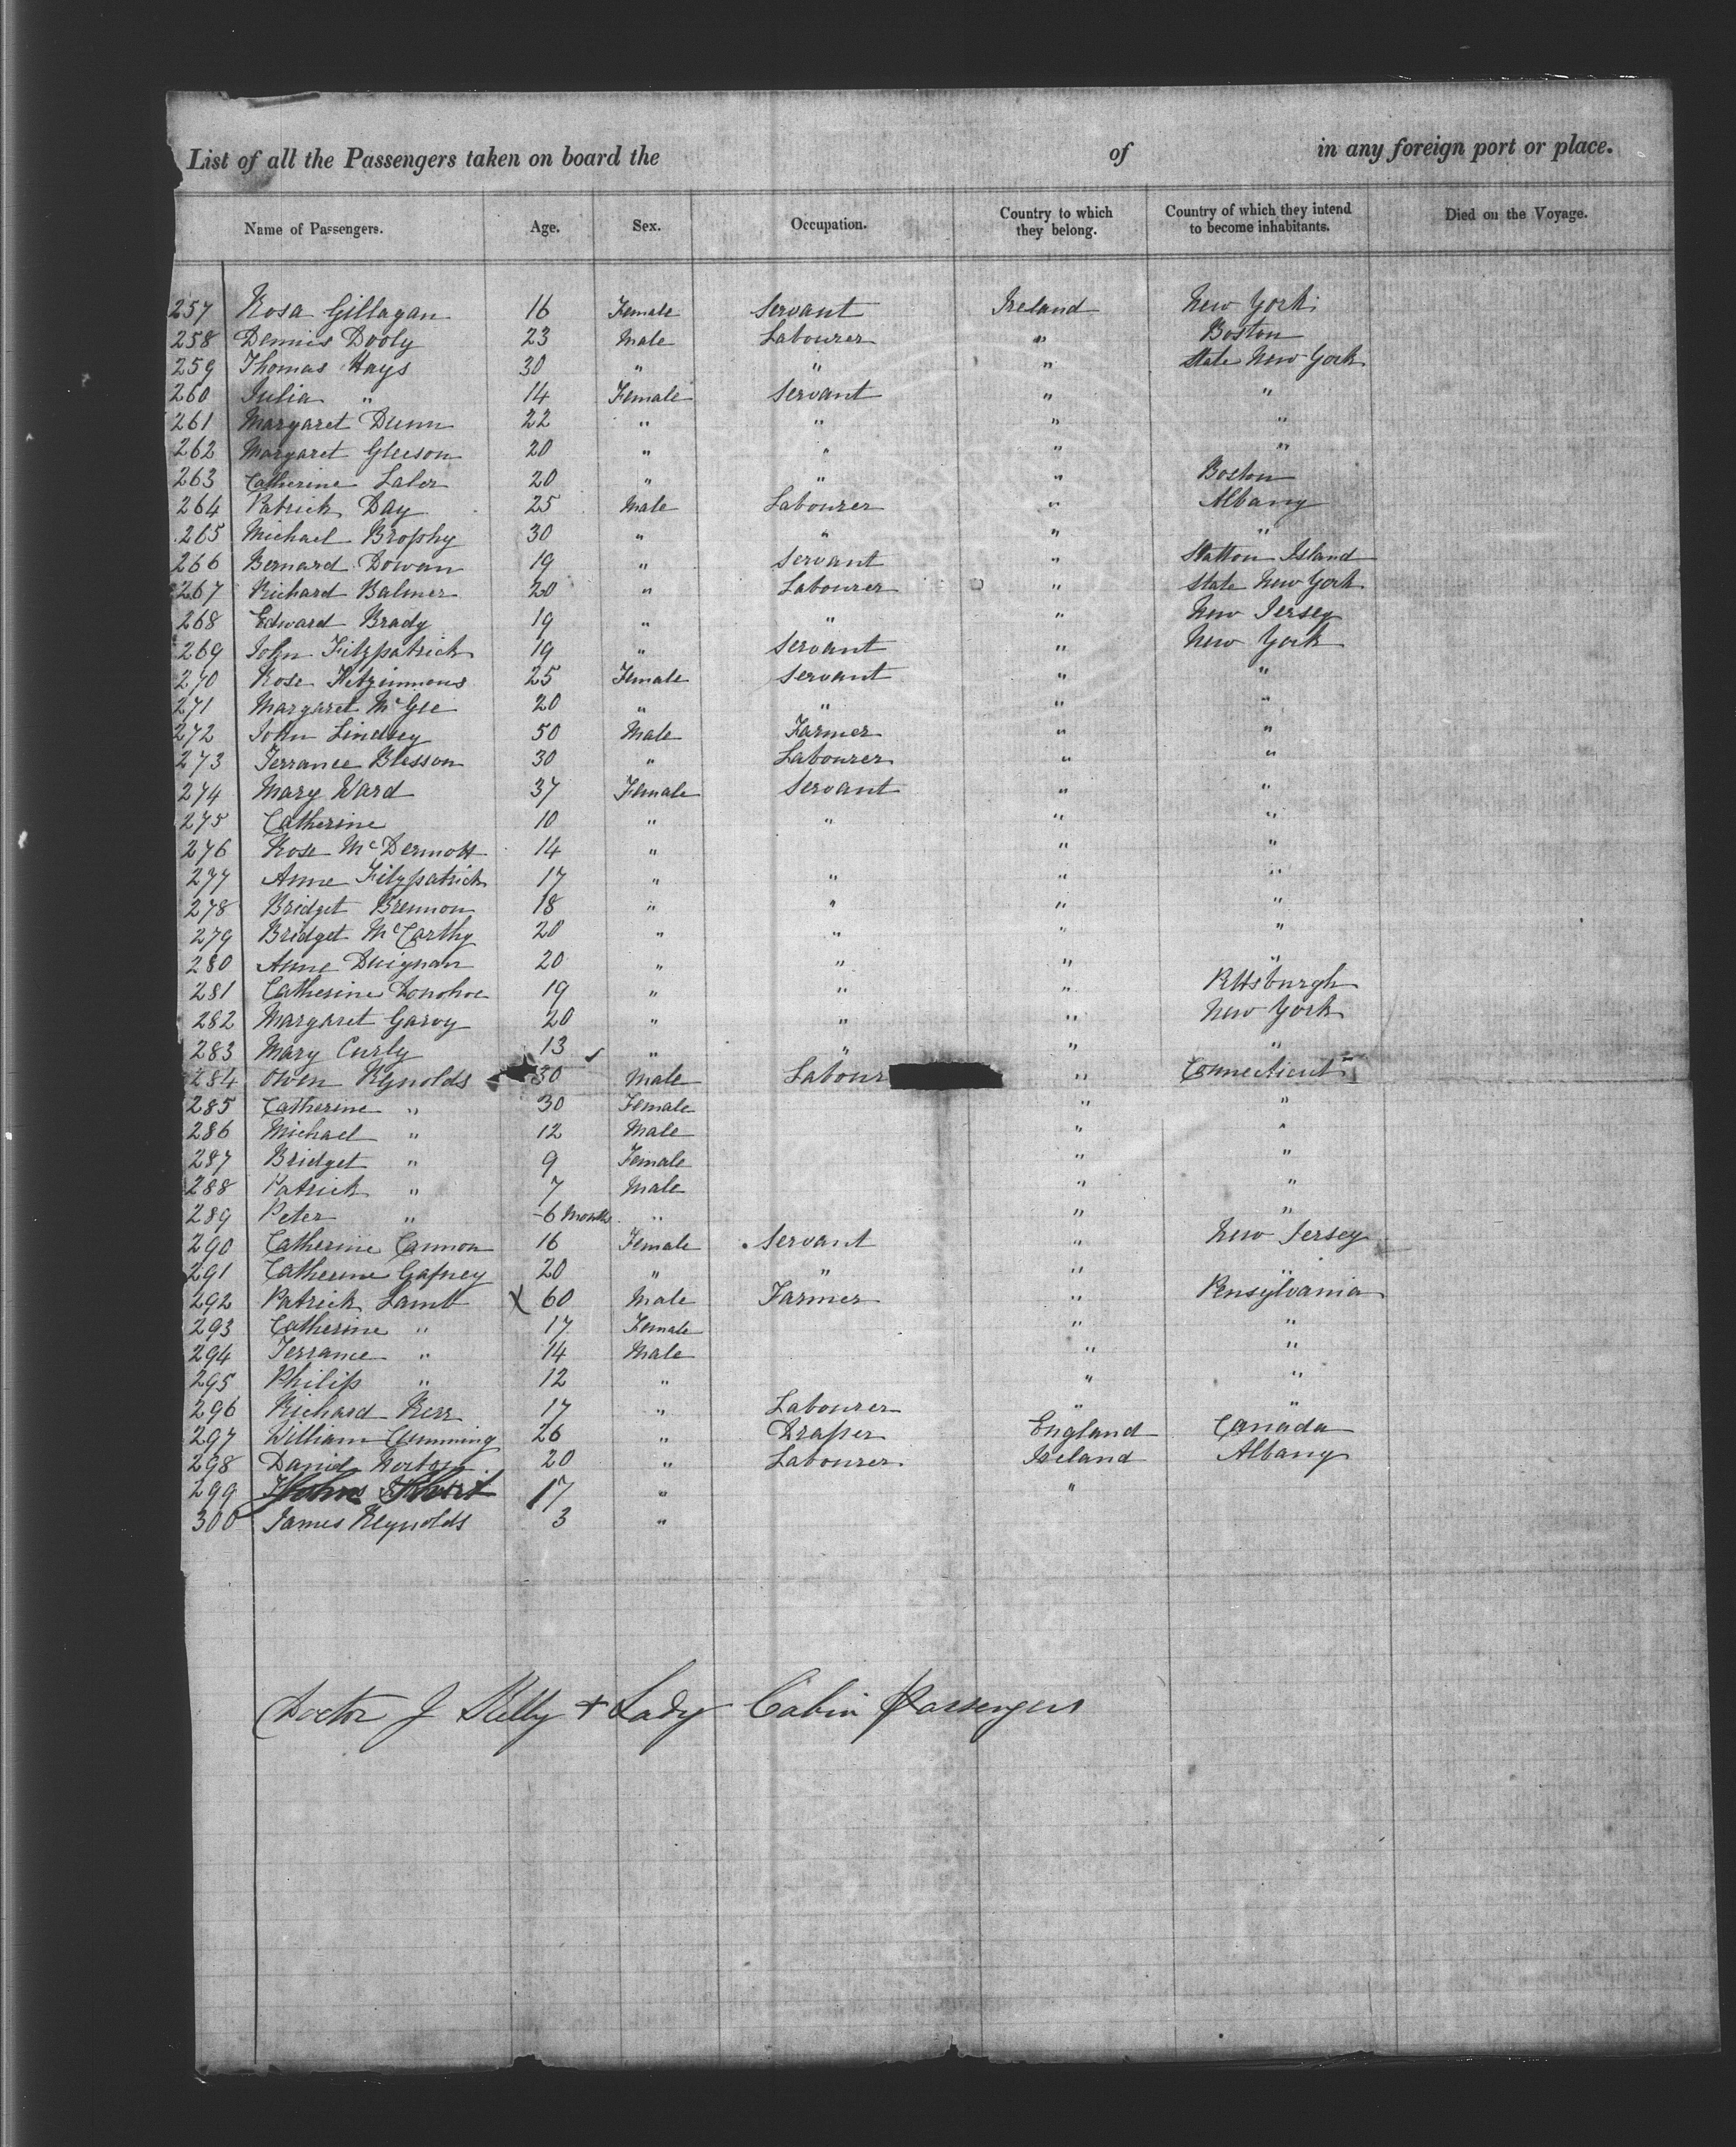 List of all the Passengers taken on board the of in any foreign port or place.
Name of Passengers. Age. Sex. Occupation. Country to which they belong. Country of which they intend to become inhabitants. Died on the Voyage.
257 Rosa Gillagan 16 Female Servant Ireland New York
258 Dennis Dooly 23 Male Labourer " Boston
259 Thomas Hays 30 " " " State New York
260 Julia " 14 Female Servant " "
261 Margaret Dunn 22 " " " "
262 Margaret Gleeson 20 " " " "
263 Catherine Lalor 20 " " " Boston
264 Patrick Day 25 Male Labourer " Albany
265 Michael Brophy 30 " " " "
266 Bernard Dowan 19 " Servant " Statton Island
267 Richard Balmer 20 " Labourer " State New York
268 Edward Brady 19 " " " New Jersey
269 John Fitzpatrick 19 " Servant " New York
270 Rose Fitzimmons 25 Female Servant " "
271 Margaret McGee 20 " " " "
272 John Lindsey 50 Male Farmer " "
273 Terrance Blesson 30 " Labourer " "
274 Mary Ward 37 Female Servant " "
275 Catherine 10 " " " "
276 Rose McDermott 14 " " "
277 Anne Fitzpatrick 17 " " " "
278 Bridget Brennon 18 " " " "
279 Bridget McCarthy 20 " " " "
280 Anne Duignan 20 " " " "
281 Catherine Donohoe 19 " " " Pittsburgh
282 Margaret Garvy 20 " " " New York
283 Mary Curly 13 " " " "
284 Owen Rynolds 30 Male Labour " Connecticut
285 Catherine " 30 Female " "
286 Michael " 12 Male " "
287 Bridget " 9 Female " "
288 Patrick " 7 Male " "
289 Peter " 6 Months " " "
290 Catherine Cannon 16 Female Servant " New Jersey
291 Catherine Gafney 20 " " " "
292 Patrick Lamb X 60 Male Farmer " Pensylvania
293 Catherine " 17 Female " "
294 Terrance " 14 Male " "
295 Philip " 12 " " "
296 Richard Kerr 17 " Labourer " "
297 William Cumming 26 " Draper England Canada
298 Daniel Norton 20 " Labourer Ireland Albany
299 John 17 " "
300 James Reynolds 3 "
Doctor J Kelly + Lady Cabin Passengers